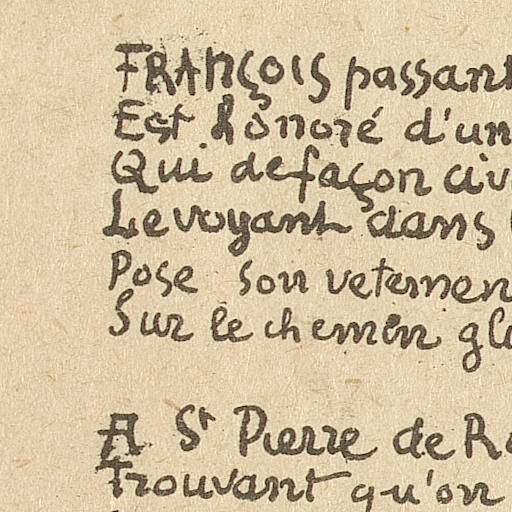 FRANÇOIS passant
Est honoré d'un
Qui de façon civ
Le voyant dans
Pose son vetemen
Sur le chemin gl
A St Pierre de R
Trouvant qu'on